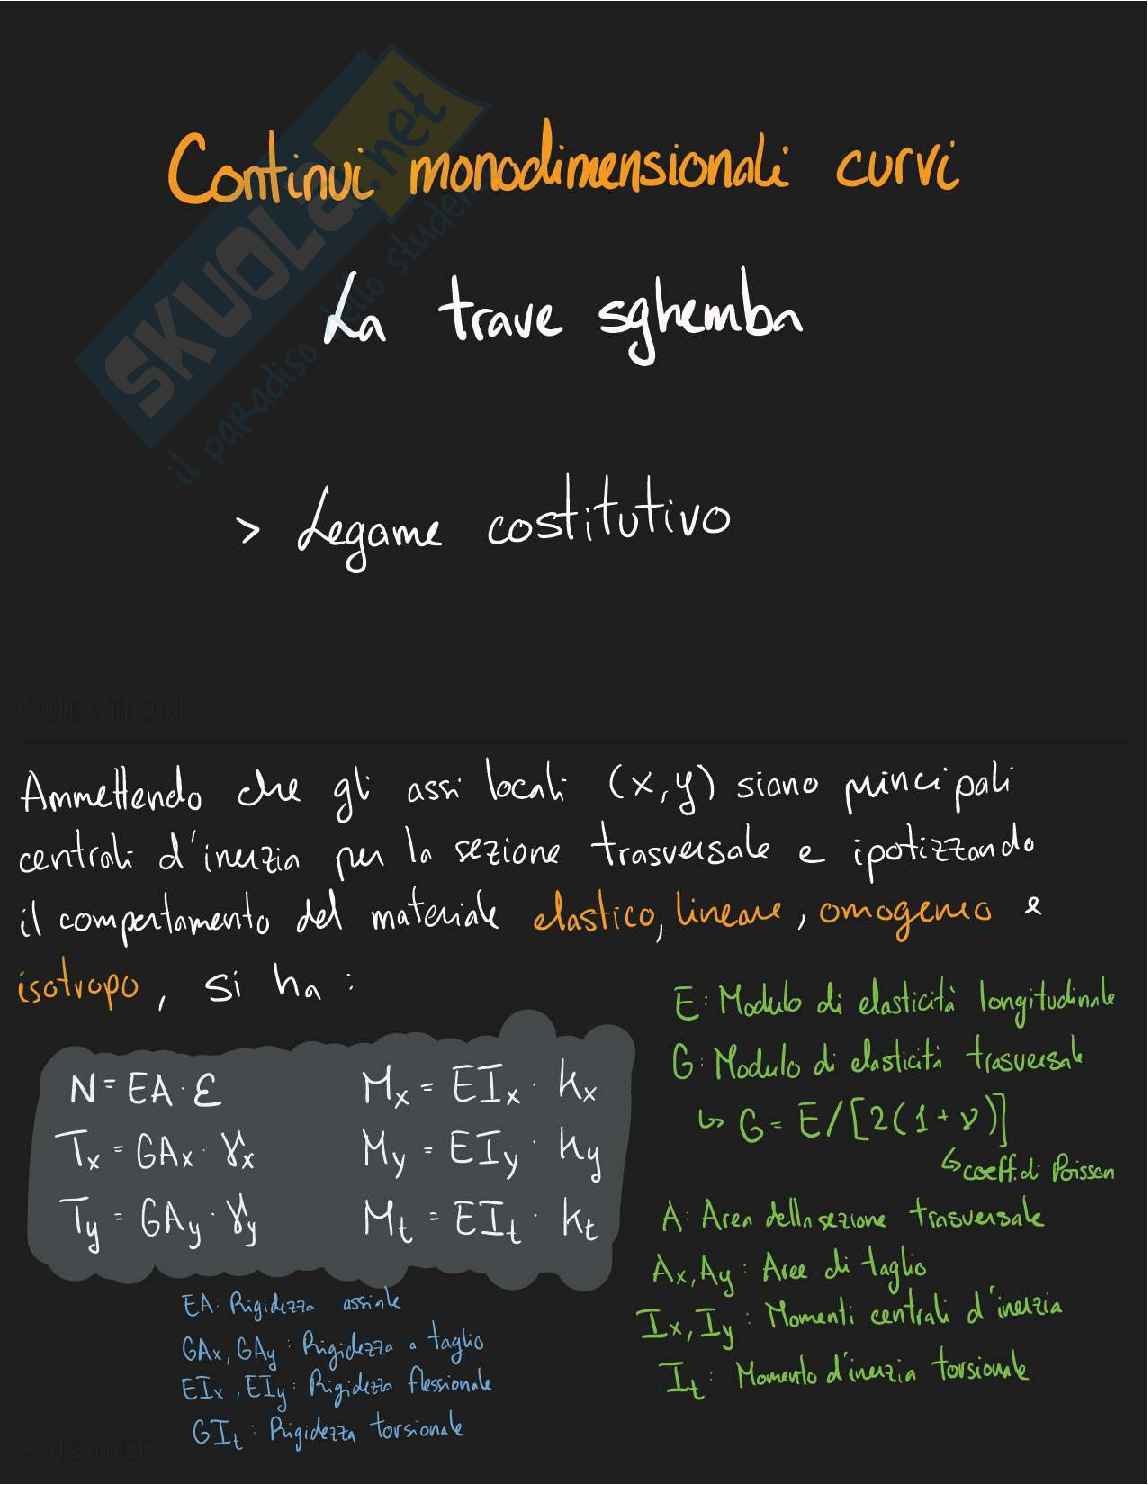 Continui monodimensionali curvi
La trave sghemba
> Legame costitutivo
SKUOLA.net
il paradiso dello studen
Ammettendo che gli assi locali (x,y) siano principali
centrali d'inerzia per la sezione trasversale e ipotizzando
il comportamento del materiale elastico, lineare, omogeneo e
isotropo, si ha :
N = EA · ε
Tx = GAx · γx
Ty = GAy · γy
Mx = EIx · kx
My = EIy · ky
Mt = EIt · kt
E: Modulo di elasticità longitudinale
G: Modulo di elasticità trasversale
↳ G = E/[2(1+ν)]
↳ coeff. di Poisson
A: Area della sezione trasversale
Ax, Ay : Aree di taglio
Ix, Iy : Momenti centrali d'inerzia
It : Momento d'inerzia torsionale
EA: Rigidezza assiale
GAx, GAy : Rigidezza a taglio
EIx, EIy : Rigidezza flessionale
GIt : Rigidezza torsionale